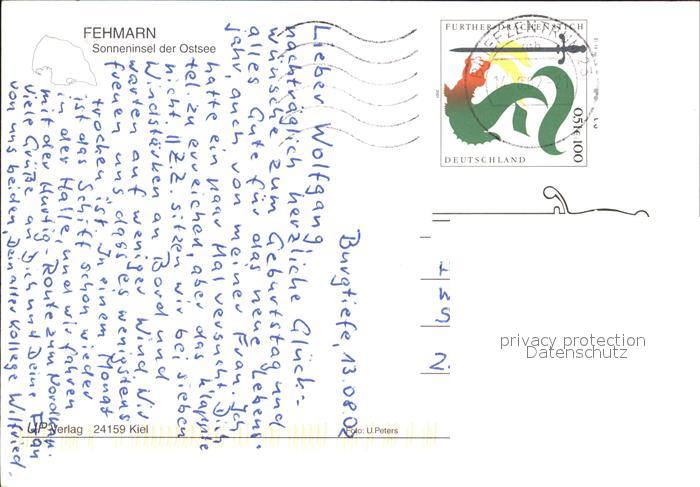 FEHMARN
Sonneninsel der Ostsee
FURTHER DRACHENSTICH
DEUTSCHLAND
0,51€ 100
Burgtiefe, 13.08.02
Lieber Wolfgang,
nachträglich herzliche Glück-
wünsche zum Geburtstag und
alles Gute für das neue Lebens-
jahr, auch von meiner Frau. Ich
hatte ein paar Mal versucht, Dich
tel. zu erreichen, aber das klappte
nicht!! Z.Z. sitzen wir bei sieben
Windstärken an Bord und
warten auf weniger Wind. Wir
freuen uns dass es wenigstens
trocken ist. In einem Monat
ist das Schiff schon wieder
in der Halle, und wir fahren
mit der Hurtig-Route zum Nordkap.
Viele Grüße an Dich und Deine Frau
von uns beiden, Dein alter Kollege Wilfried.
UP Verlag 24159 Kiel
Foto: U.Peters
privacy protection
Datenschutz